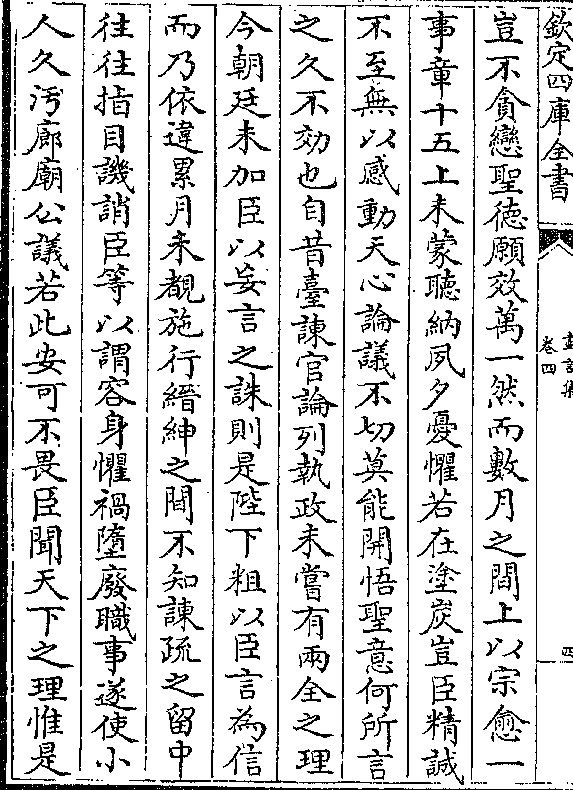 欽定四庫全書
盡言集
卷四
四
豈不貪戀聖德願效萬一然而數月之間上以宗愈一
事章十五上未蒙聽納夙夕憂懼若在塗炭豈臣精誠
不至無以感動天心論議不切莫能開悟聖意何所言
之久不効也自昔臺諫官論列執政未嘗有兩全之理
今朝廷未加臣以妄言之誅則是陛下粗以臣言為信
而乃依違累月未覩施行縉紳之間不知諫疏之留中
往往指目譏誚臣等以謂容身懼禍墮廢職事遂使小
人久汚廊廟公議若此安可不畏臣聞天下之理惟是